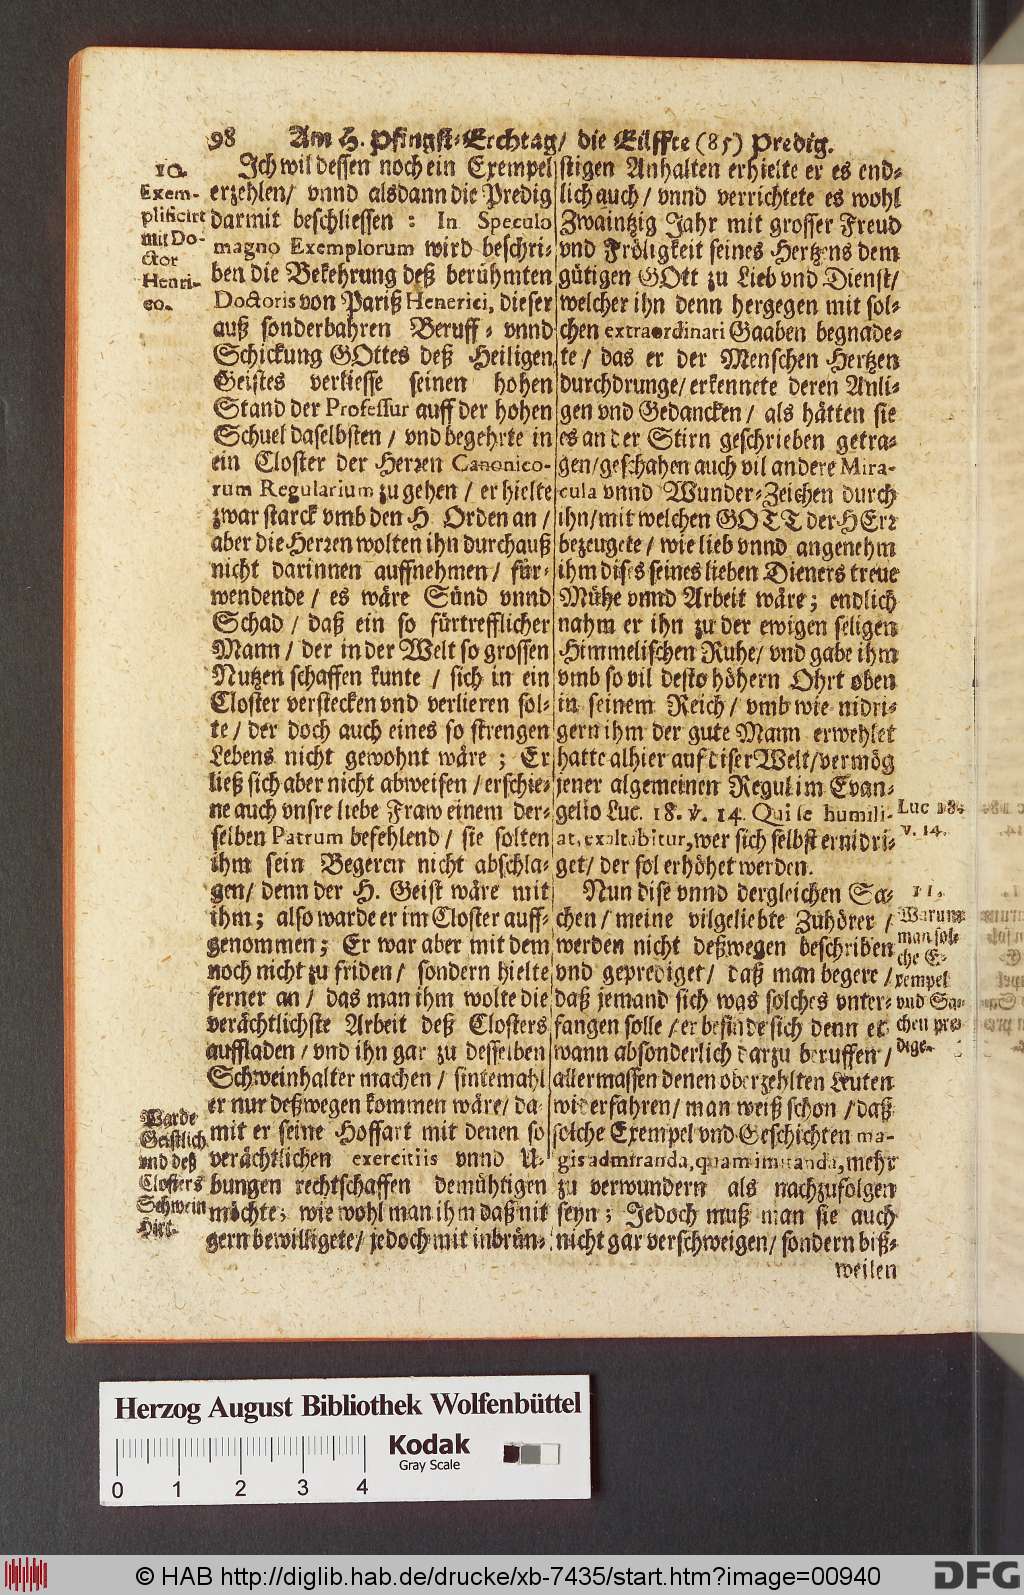 98 Am H. Pfingst-Erchtag / die Eilffte (85) Predig.
10.
Exem-
plificirt
mit Do-
ctor
Henri-
co.
Ich wil dessen noch ein Exempel
erzehlen / vnnd alsdann die Predig
darmit beschliessen : In Speculo
magno Exemplorum wird beschri-
ben die Bekehrung deß berühmten
Doctoris von Pariß Henerici, dieser
auß sonderbahren Beruff - vnnd
Schickung GOttes deß Heiligen
Geistes verliesse seinen hohen
Stand der Professur auff der hohen
Schuel daselbsten / vnd begehrte in
ein Closter der Herren Canonico-
rum Regularium zu gehen / er hielte
zwar starck vmb den H. Orden an /
aber die Herren wolten ihn durchauß
nicht darinnen auffnehmen / für-
wendende / es wäre Sünd vnnd
Schad / daß ein so fürtrefflicher
Mann / der in der Welt so grossen
Nutzen schaffen kunte / sich in ein
Closter verstecken vnd verlieren sol-
te / der doch auch eines so strengen
Lebens nicht gewohnt wäre ; Er
ließ sich aber nicht abweisen / erschie-
ne auch vnsre liebe Fraw einem der-
selben Patrum befehlend / sie solten
ihm sein Begeren nicht abschla-
gen / denn der H. Geist wäre mit
ihm ; also warde er im Closter auff-
genommen ; Er war aber mit dem
noch nicht zu friden / sondern hielte
ferner an / das man ihm wolte die
verächtlichste Arbeit deß Closters
auffladen / vnd ihn gar zu desselben
Schweinhalter machen / sintemahl
er nur deßwegen kommen wäre / da-
mit er seine Hoffart mit denen so
verächtlichen exercitiis vnnd U-
bungen rechtschaffen demühtigen
möchte ; wie wohl man ihm daß nit
gern bewilligete / jedoch mit inbrün-
Warde
Geistlich
und deß
Closters
Schwein
Hirt.
stigen Anhalten erhielte er es end-
lich auch / vnnd verrichtete es wohl
Zwaintzig Jahr mit grosser Freud
vnd Fröligkeit seines Hertzens dem
gütigen GOtt zu Lieb vnd Dienst /
welcher ihn denn hergegen mit sol-
chen extraordinari Gaaben begnade-
te / das er der Menschen Hertzen
durchdrunge / erkennete deren Anli-
gen vnd Gedancken / als hätten sie
es an der Stirn geschrieben getra-
gen / geschahen auch vil andere Mira-
cula vnnd Wunder-Zeichen durch
ihn / mit welchen GOTT der HErr
bezeugete / wie lieb vnnd angenehm
ihm dises seines lieben Dieners treue
Mühe vnnd Arbeit wäre ; endlich
nahm er ihn zu der ewigen seligen
Himmelischen Ruhe / vnd gabe ihm
vmb so vil desto höhern Ohrt oben
in seinem Reich / vmb wie nidri-
gern ihm der gute Mann erwehlet
hatte alhier auf diser Welt / vermög
jener algemeinen Regul im Evan-
gelio Luc. 18. v. 14. Qui se humili-
at, exaltabitur, wer sich selbst ernidri-
get / der sol erhöhet werden.
Nun dise vnnd dergleichen Sa-
chen / meine vilgeliebte Zuhörer /
werden nicht deßwegen beschriben
vnd geprediget / daß man begere /
daß jemand sich was solches vnter-
fangen solle / er befinde sich denn et-
wann absonderlich darzu beruffen /
allermassen denen oberzehlten Leuten
widerfahren / man weiß schon / daß
solche Exempel vnd Geschichten ma-
gis admiranda, quam imitanda, mehr
zu verwundern als nachzufolgen
seyn ; Jedoch muß man sie auch
nicht gar verschweigen / sondern biß-
weilen
Luc 18.
v. 14.
11.
Warumb
man sol-
che E-
xempel
vnd Sa-
chen pre-
dige.
Herzog August Bibliothek Wolfenbüttel
Kodak
Gray Scale
0 1 2 3 4
© HAB http://diglib.hab.de/drucke/xb-7435/start.htm?image=00940
DFG